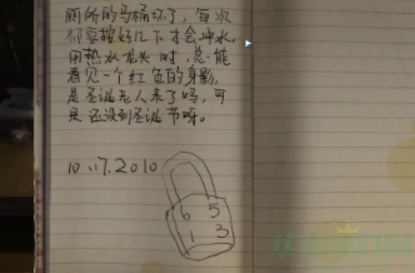 厕所的马桶坏了，每次
都要按好几下才会冲水。
用热水龙头时，总能
看见一个红色的身影，
是圣诞老人来了吗，可
是还没到圣诞节呀。
10.17.2010
6 5
1 3